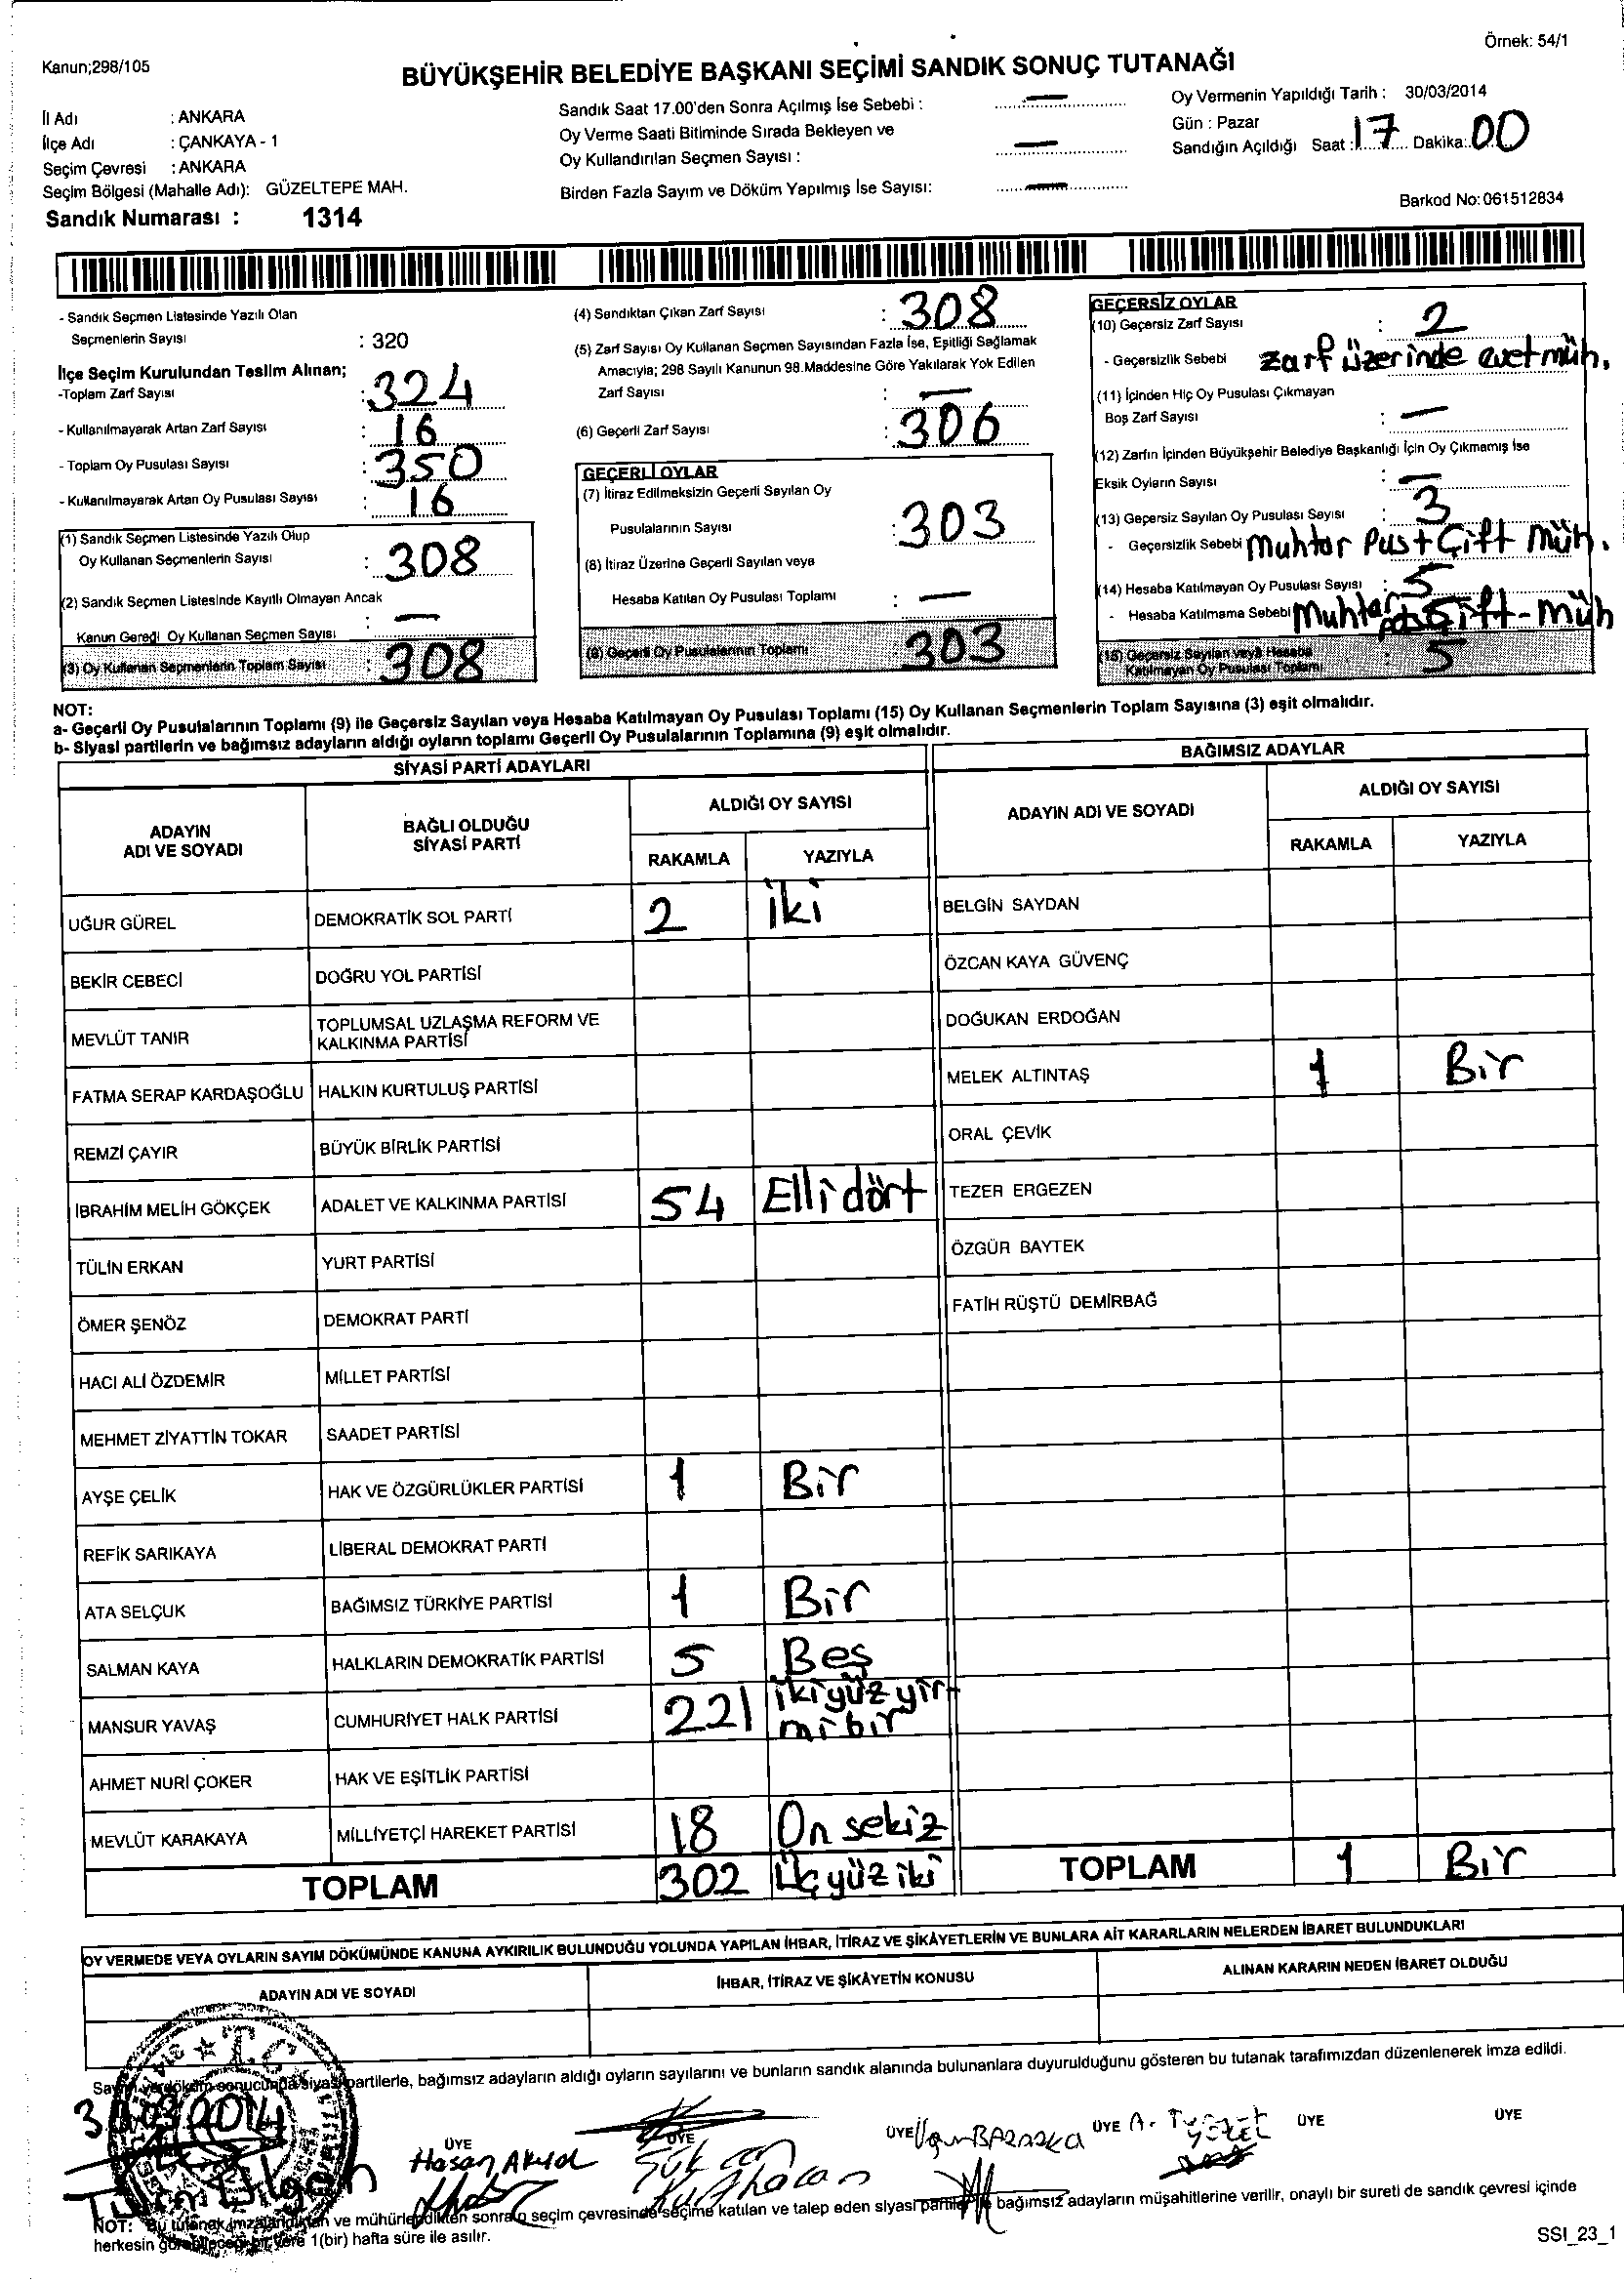 Örnek: 54/1
Kanun;298/105
BÜYÜKŞEHİR BELEDİYE BAŞKANI SEÇİMİ SANDIK SONUÇ TUTANAĞI
İl Adı : ANKARA
İlçe Adı : ÇANKAYA - 1
Seçim Çevresi : ANKARA
Seçim Bölgesi (Mahalle Adı): GÜZELTEPE MAH.
Sandık Numarası : 1314
Sandık Saat 17.00'den Sonra Açılmış İse Sebebi : —
Oy Verme Saati Bitiminde Sırada Bekleyen ve
Oy Kullandırılan Seçmen Sayısı : —
Birden Fazla Sayım ve Döküm Yapılmış İse Sayısı: —
Oy Vermenin Yapıldığı Tarih : 30/03/2014
Gün : Pazar
Sandığın Açıldığı Saat : 17 Dakika: 00
Barkod No: 061512834
- Sandık Seçmen Listesinde Yazılı Olan
Seçmenlerin Sayısı : 320
İlçe Seçim Kurulundan Teslim Alınan;
-Toplam Zarf Sayısı : 324
- Kullanılmayarak Artan Zarf Sayısı : 16
- Toplam Oy Pusulası Sayısı : 350
- Kullanılmayarak Artan Oy Pusulası Sayısı : 16
(1) Sandık Seçmen Listesinde Yazılı Olup
Oy Kullanan Seçmenlerin Sayısı : 308
(2) Sandık Seçmen Listesinde Kayıtlı Olmayan Ancak
Kanun Gereği Oy Kullanan Seçmen Sayısı : —
(3) Oy Kullanan Seçmenlerin Toplam Sayısı : 308
(4) Sandıktan Çıkan Zarf Sayısı : 308
(5) Zarf Sayısı Oy Kullanan Seçmen Sayısından Fazla İse, Eşitliği Sağlamak
Amacıyla; 298 Sayılı Kanunun 98.Maddesine Göre Yakılarak Yok Edilen
Zarf Sayısı : —
(6) Geçerli Zarf Sayısı : 306
GEÇERLİ OYLAR
(7) İtiraz Edilmeksizin Geçerli Sayılan Oy
Pusulalarının Sayısı : 303
(8) İtiraz Üzerine Geçerli Sayılan veya
Hesaba Katılan Oy Pusulası Toplamı : —
(9) Geçerli Oy Pusulalarının Toplamı 303
GEÇERSİZ OYLAR
(10) Geçersiz Zarf Sayısı : 2
- Geçersizlik Sebebi zarf üzerinde evet müh.
(11) İçinden Hiç Oy Pusulası Çıkmayan
Boş Zarf Sayısı : —
(12) Zarfın İçinden Büyükşehir Belediye Başkanlığı İçin Oy Çıkmamış İse
Eksik Oyların Sayısı : —
(13) Geçersiz Sayılan Oy Pusulası Sayısı : 3
- Geçersizlik Sebebi Muhtar Pust Çift Müh.
(14) Hesaba Katılmayan Oy Pusulası Sayısı : 5
- Hesaba Katılmama Sebebi Muhtar Çift-müh
(15) Geçersiz Sayılan veya Hesaba
Katılmayan Oy Pusulası Toplamı : 5
NOT:
a- Geçerli Oy Pusulalarının Toplamı (9) ile Geçersiz Sayılan veya Hesaba Katılmayan Oy Pusulası Toplamı (15) Oy Kullanan Seçmenlerin Toplam Sayısına (3) eşit olmalıdır.
b- Siyasi partilerin ve bağımsız adayların aldığı oyların toplamı Geçerli Oy Pusulalarının Toplamına (9) eşit olmalıdır.
SİYASİ PARTİ ADAYLARI
ADAYIN ADI VE SOYADI BAĞLI OLDUĞU SİYASİ PARTİ ALDIĞI OY SAYISI
RAKAMLA YAZIYLA
UĞUR GÜREL DEMOKRATİK SOL PARTİ 2 iki
BEKİR CEBECİ DOĞRU YOL PARTİSİ
MEVLÜT TANIR TOPLUMSAL UZLAŞMA REFORM VE KALKINMA PARTİSİ
FATMA SERAP KARDAŞOĞLU HALKIN KURTULUŞ PARTİSİ
REMZİ ÇAYIR BÜYÜK BİRLİK PARTİSİ
İBRAHİM MELİH GÖKÇEK ADALET VE KALKINMA PARTİSİ 54 Elli dört
TÜLİN ERKAN YURT PARTİSİ
ÖMER ŞENÖZ DEMOKRAT PARTİ
HACI ALİ ÖZDEMİR MİLLET PARTİSİ
MEHMET ZİYATTİN TOKAR SAADET PARTİSİ
AYŞE ÇELİK HAK VE ÖZGÜRLÜKLER PARTİSİ 1 Bir
REFİK SARIKAYA LİBERAL DEMOKRAT PARTİ
ATA SELÇUK BAĞIMSIZ TÜRKİYE PARTİSİ 1 Bir
SALMAN KAYA HALKLARIN DEMOKRATİK PARTİSİ 5 Beş
MANSUR YAVAŞ CUMHURİYET HALK PARTİSİ 221 ikiyüz yirmi bir
AHMET NURİ ÇOKER HAK VE EŞİTLİK PARTİSİ
MEVLÜT KARAKAYA MİLLİYETÇİ HAREKET PARTİSİ 18 On sekiz
TOPLAM 302 Üç yüz iki
BAĞIMSIZ ADAYLAR
ADAYIN ADI VE SOYADI ALDIĞI OY SAYISI
RAKAMLA YAZIYLA
BELGİN SAYDAN
ÖZCAN KAYA GÜVENÇ
DOĞUKAN ERDOĞAN
MELEK ALTINTAŞ 1 Bir
ORAL ÇEVİK
TEZER ERGEZEN
ÖZGÜR BAYTEK
FATİH RÜŞTÜ DEMİRBAĞ
TOPLAM 1 Bir
OY VERMEDE VEYA OYLARIN SAYIM DÖKÜMÜNDE KANUNA AYKIRILIK BULUNDUĞU YOLUNDA YAPILAN İHBAR, İTİRAZ VE ŞİKÂYETLERİN VE BUNLARA AİT KARARLARIN NELERDEN İBARET BULUNDUKLARI
ADAYIN ADI VE SOYADI İHBAR, İTİRAZ VE ŞİKÂYETİN KONUSU ALINAN KARARIN NEDEN İBARET OLDUĞU
Sayım ve döküm sonucunda siyasi partilerle, bağımsız adayların aldığı oyların sayılarını ve bunların sandık alanında bulunanlara duyurulduğunu gösteren bu tutanak tarafımızdan düzenlenerek imza edildi.
T.C.
2014
ÜYE ÜYE ÜYE ÜYE ÜYE ÜYE
Hasan
NOT: Bu tutanak imzalandıktan ve mühürlendikten sonra o seçim çevresinde seçime katılan ve talep eden siyasi partiler ile bağımsız adayların müşahitlerine verilir, onaylı bir sureti de sandık çevresi içinde
herkesin görebileceği bir yere 1(bir) hafta süre ile asılır.
SSI_23_1